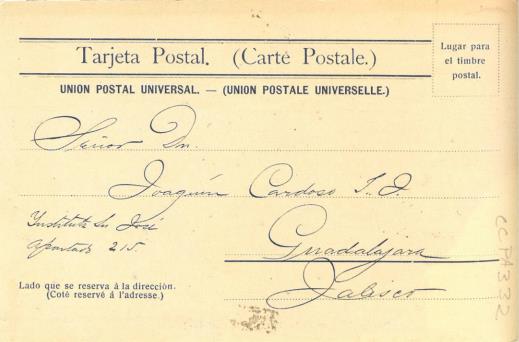 Tarjeta Postal. (Carté Postale.)
Lugar para
el timbre
postal.
UNION POSTAL UNIVERSAL. — (UNION POSTALE UNIVERSELLE.)
Señor Dn.
Joaquín Cardoso S. J.
Instituto Sn José
Apartado 215.
Guadalajara
Jalisco
Lado que se reserva á la dirección.
(Coté reservé á l'adresse.)
CCPA332